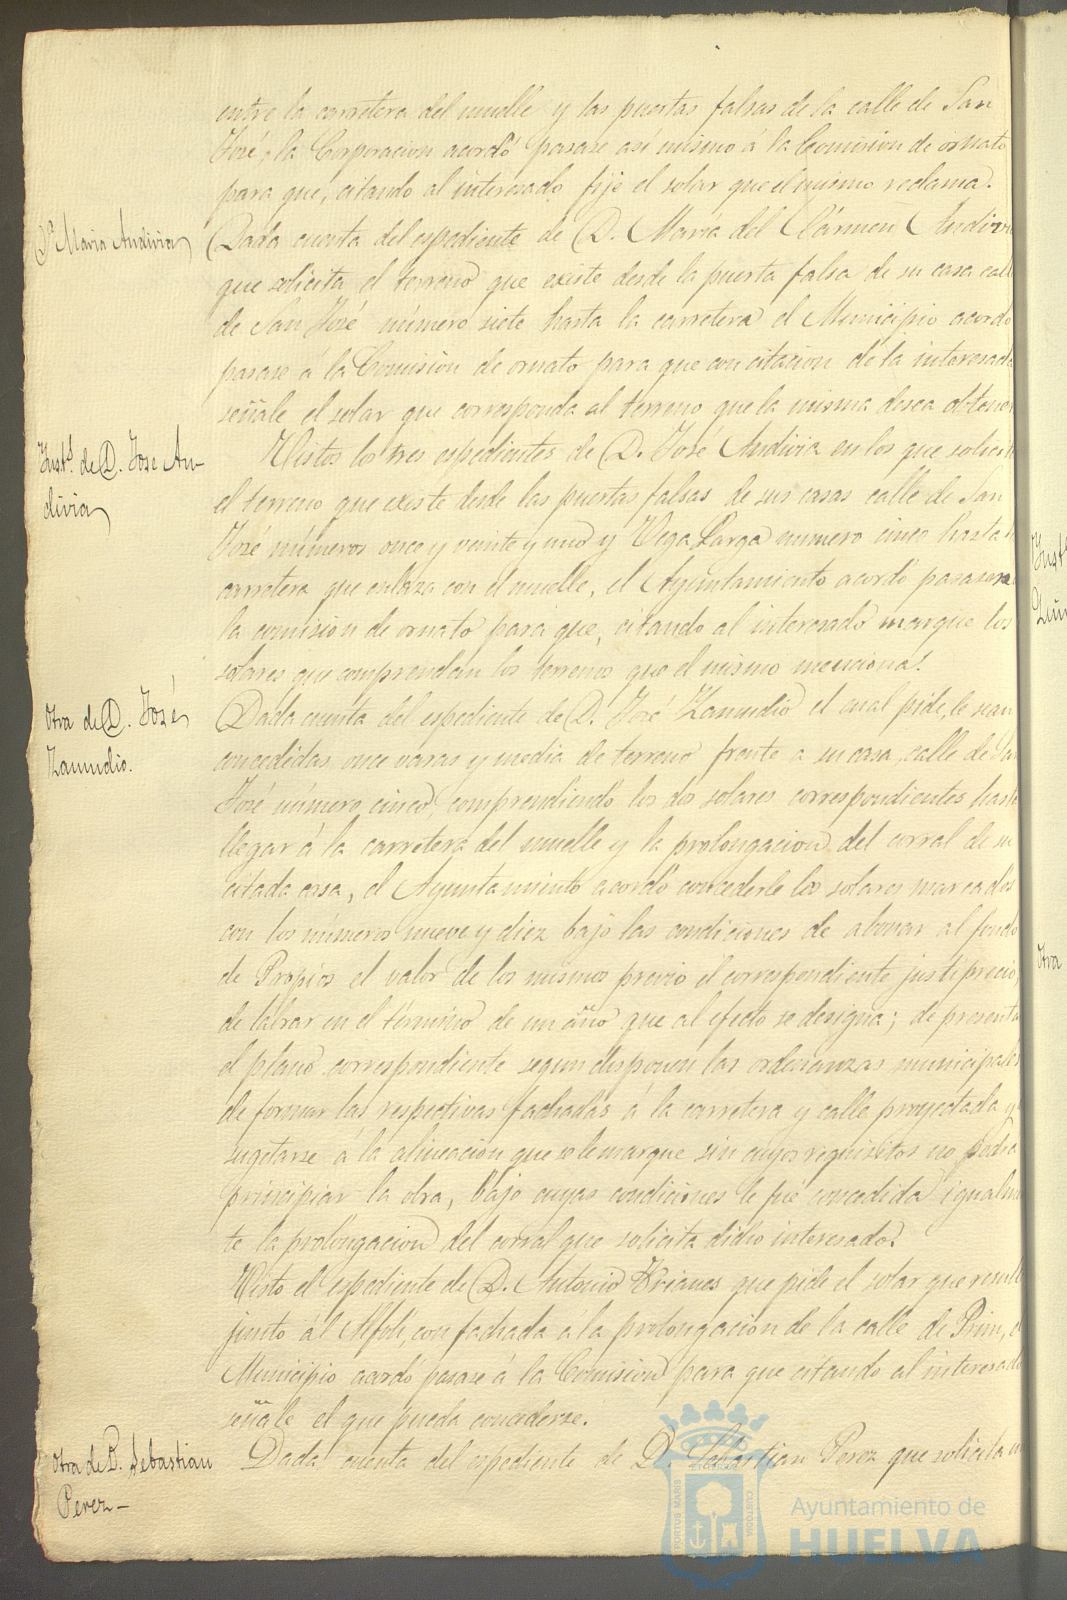 entre la carretera del muelle y las puertas falsas de la calle de San
José, la Corporacion acordó pasase asi mismo á la Comision de ornato
para que, citando al interesado, fije el solar que el mismo reclama.
Dª Maria Andivia
Dada cuenta del espediente de D. María del Cármen Andivi
que solicita el terreno que existe desde la puerta falsa de su casa call
de San José número siete hasta la carretera el Municipio acordó
pasase á la Comision de ornato para que con citacion de la interesada
señale el solar que corresponda al terreno que la misma desea obtener
Instª. de D. José An-
divia
Vistos los tres espedientes de D. José Andivia en los que solicit
el terreno que existe desde las puertas falsas de sus casas calle de San
José números once y veinte y uno y Vega Larga numero cinco hasta l
carretera que enlaza con el muelle, el Ayuntamiento acordó pasasen a
la comision de ornato para que, citando al interesado marque los
solares que comprendan los terrenos que el mismo menciona.
Otra de D. José
Zamudio.
Dada cuenta del espediente de D. José Zamudio el cual pide, le sean
concedidas once varas y media de terreno frente a su casa, calle de San
José número cinco, comprendiendo los dos solares correspondientes hasta
llegar á la carretera del muelle y la prolongacion del corral de su
citada casa, el Ayuntamiento acordó concederle los solares marcados
con los números nueve y diez bajo las condiciones de abonar al fondo
de Propios el valor de los mismos previo el correspondiente justiprecio,
de labrar en el término de un año que al efecto se designa; de presenta
el plano correspondiente segun disponen las ordenanzas municipales
de formar las respectivas fachadas á la carretera y calle proyectada y
sugetarse á la alineacion que se le marque sin cuyos requisitos no podrá
principiar la obra, bajo cuyas condiciones le fué concedida igualmen
te la prolongacion del corral que solicita dicho interesado.
Visto el espediente de D. Antonio Frianes que pide el solar que result
junto al Alfolí, con fachada á la prolongacion de la calle de Prim, el
Municipio acordó pasase á la Comision para que citando al interesado
señale el que pueda concederse.
Otra de D. Sebastian
Perez-
Dada cuenta del espediente de D. Sebastian Perez que solicita un
Inst
Otra
PORTUS MARIS
CUSTODIA
Ayuntamiento de
HUELVA